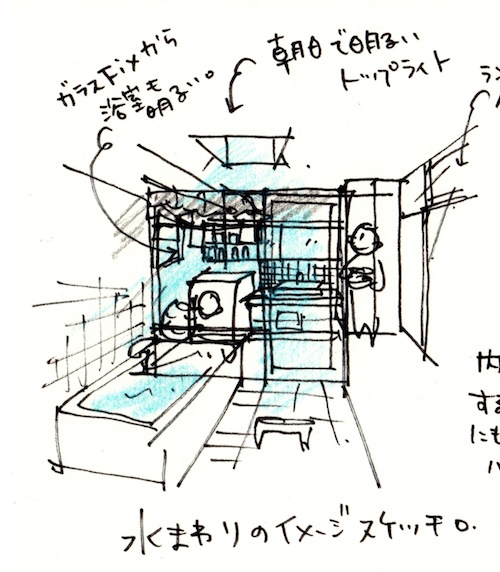 ガラスFixから
浴室も
明るい。
朝日で明るい
トップライト
ラン
内
する
にも
ハ
水まわりのイメージスケッチ。